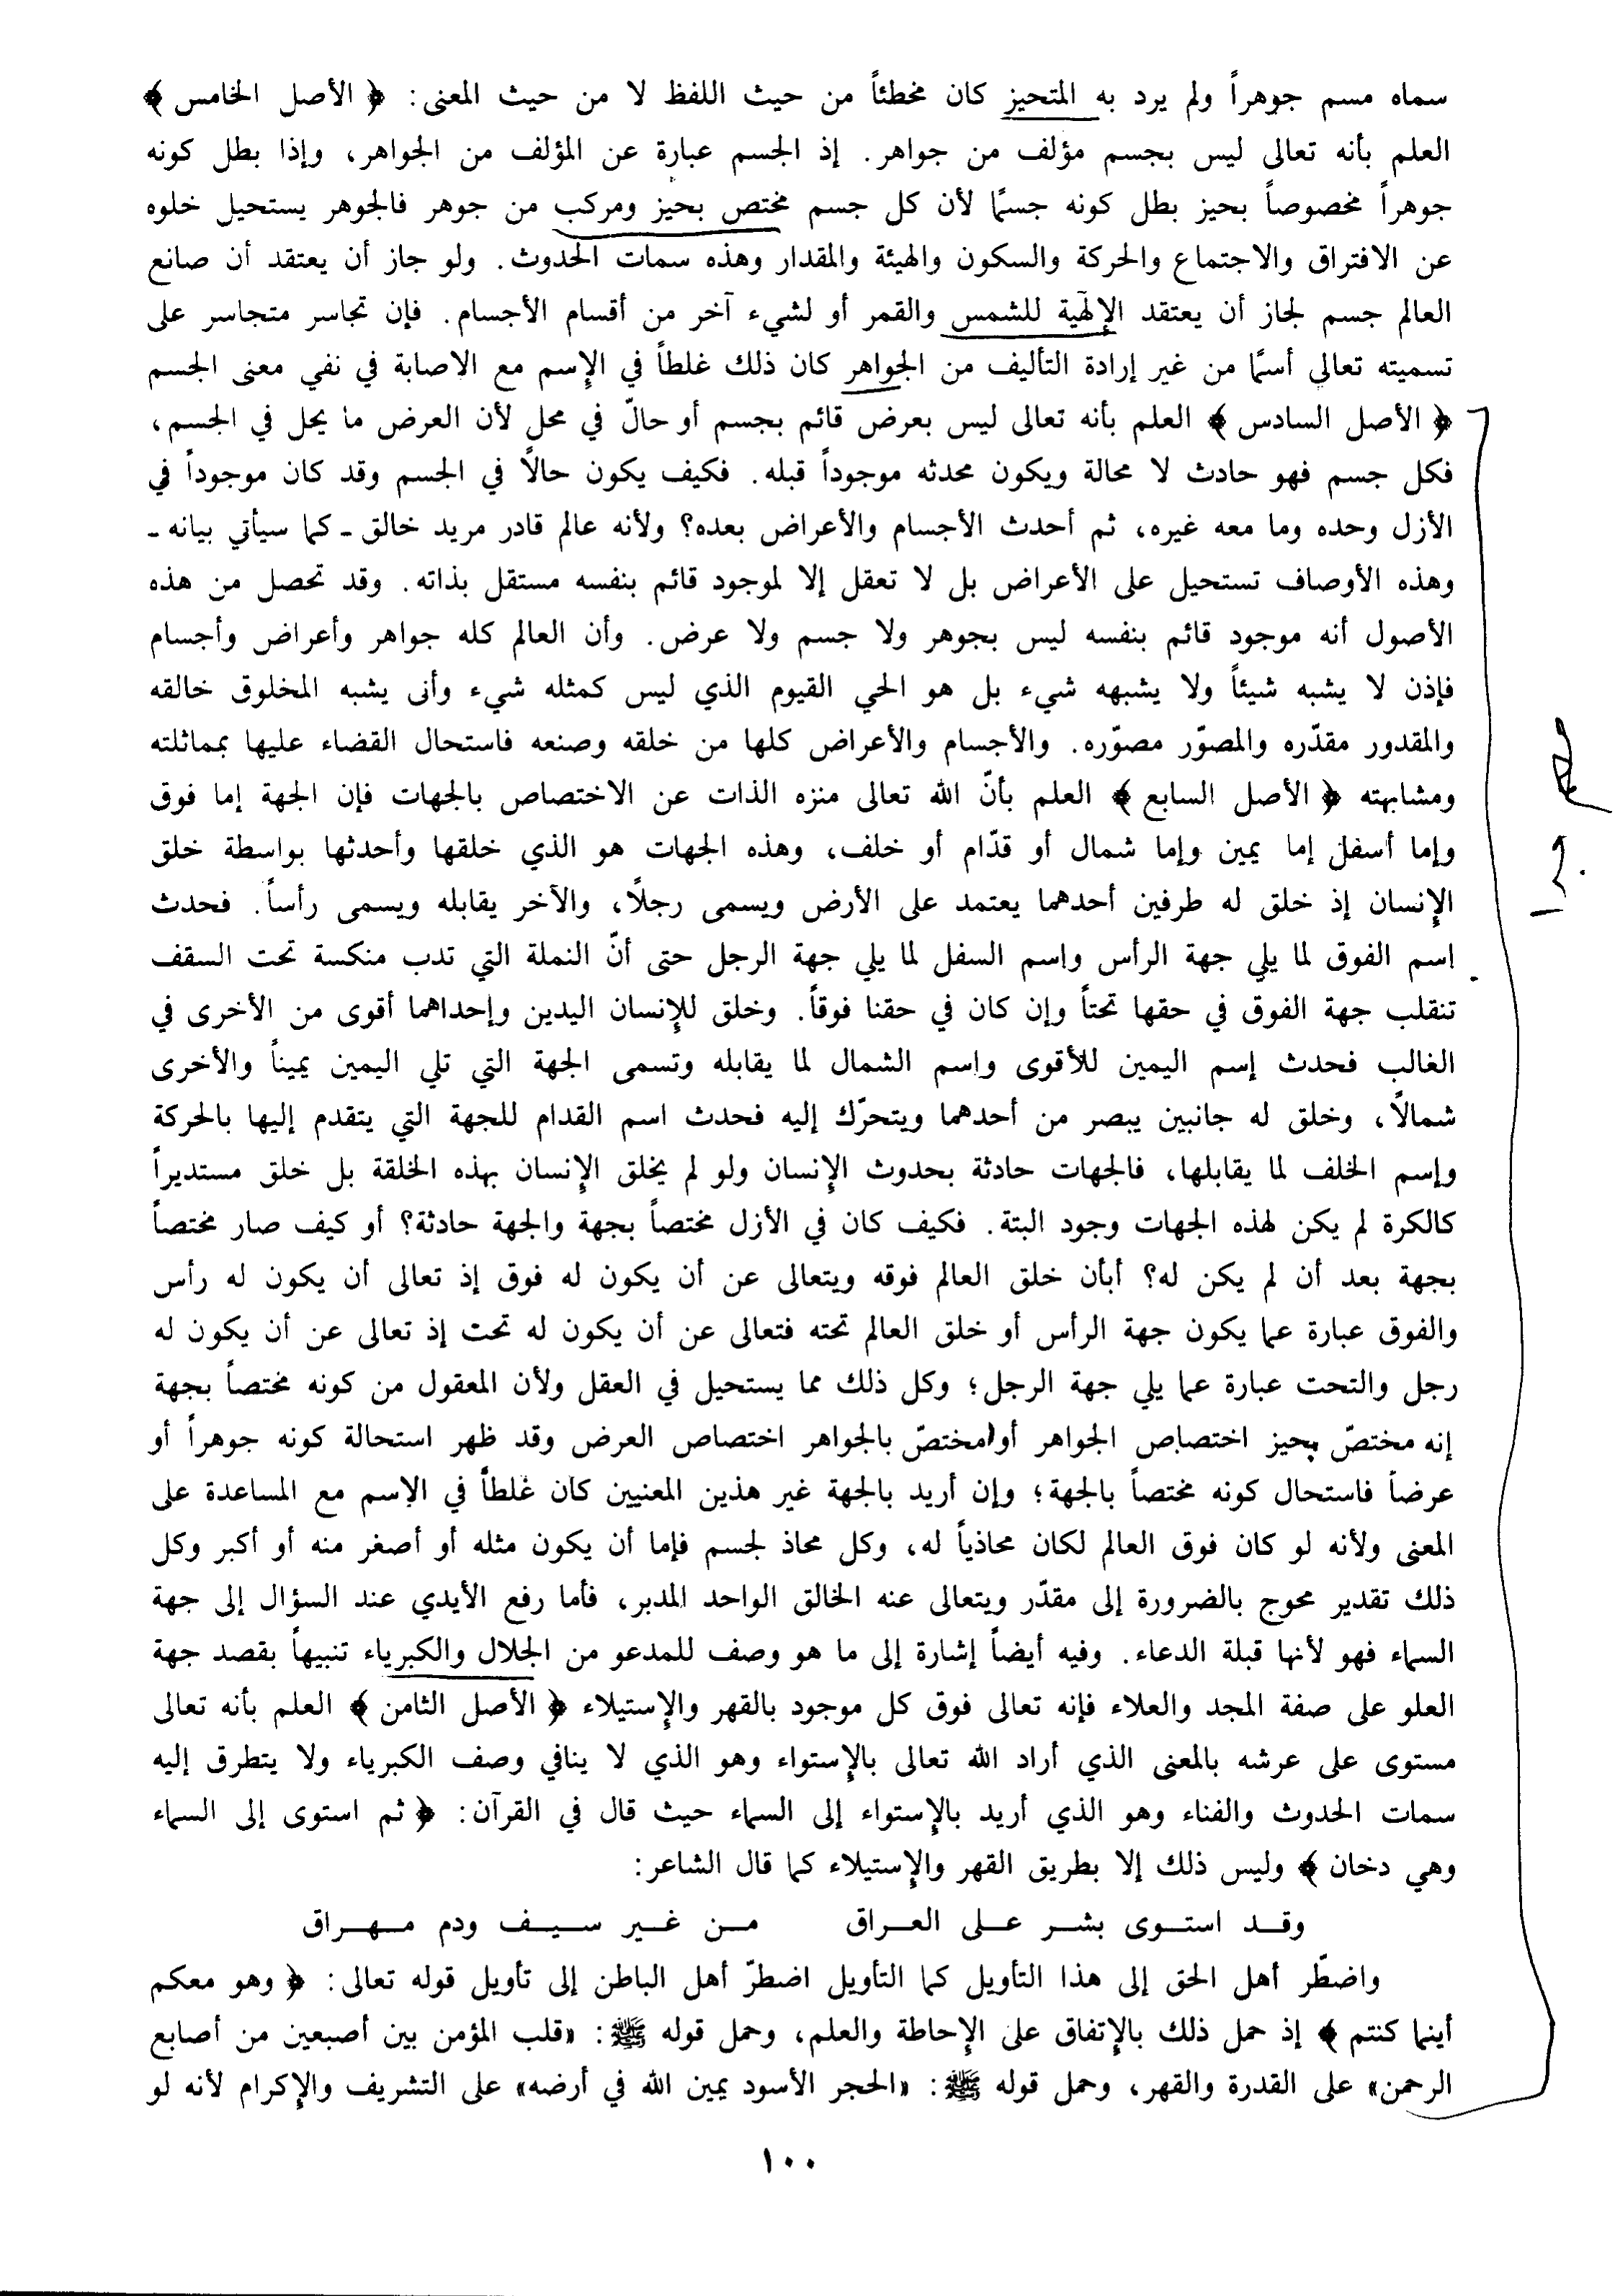 سماه مسم جوهراً ولم يرد به المتحيز كان مخطئاً من حيث اللفظ لا من حيث المعنى: ﴿ الأصل الخامس ﴾
العلم بأنه تعالى ليس بجسم مؤلف من جواهر. إذ الجسم عبارة عن المؤلف من الجواهر، وإذا بطل كونه
جوهراً مخصوصاً بحيز بطل كونه جسمًا لأن كل جسم مختص بحيز ومركب من جوهر فالجوهر يستحيل خلوه
عن الافتراق والاجتماع والحركة والسكون والهيئة والمقدار وهذه سمات الحدوث. ولو جاز أن يعتقد أن صانع
العالم جسم لجاز أن يعتقد الإلهية للشمس والقمر أو لشيء آخر من أقسام الأجسام. فإن تجاسر متجاسر على
تسميته تعالى أسمًا من غير إرادة التأليف من الجواهر كان ذلك غلطاً في الإسم مع الاصابة في نفي معنى الجسم
﴿ الأصل السادس ﴾ العلم بأنه تعالى ليس بعرض قائم بجسم أو حالّ في محل لأن العرض ما يحل في الجسم،
فكل جسم فهو حادث لا محالة ويكون محدثه موجوداً قبله. فكيف يكون حالًا في الجسم وقد كان موجوداً في
الأزل وحده وما معه غيره، ثم أحدث الأجسام والأعراض بعده؟ ولأنه عالم قادر مريد خالق ـ كما سيأتي بيانه ـ
وهذه الأوصاف تستحيل على الأعراض بل لا تعقل إلا لموجود قائم بنفسه مستقل بذاته. وقد تحصل من هذه
الأصول أنه موجود قائم بنفسه ليس بجوهر ولا جسم ولا عرض. وأن العالم كله جواهر وأعراض وأجسام
فإذن لا يشبه شيئاً ولا يشبهه شيء بل هو الحي القيوم الذي ليس كمثله شيء وأنى يشبه المخلوق خالقه
والمقدور مقدّره والمصوّر مصوّره. والأجسام والأعراض كلها من خلقه وصنعه فاستحال القضاء عليها بمماثلته
ومشابهته ﴿ الأصل السابع ﴾ العلم بأنّ الله تعالى منزه الذات عن الاختصاص بالجهات فإن الجهة إما فوق
وإما أسفل إما يمين وإما شمال أو قدّام أو خلف، وهذه الجهات هو الذي خلقها وأحدثها بواسطة خلق
الإنسان إذ خلق له طرفين أحدهما يعتمد على الأرض ويسمى رجلًا، والآخر يقابله ويسمى رأساً. فحدث
اسم الفوق لما يلي جهة الرأس وإسم السفل لما يلي جهة الرجل حتى أنّ النملة التي تدب منكسة تحت السقف
تنقلب جهة الفوق في حقها تحتاً وإن كان في حقنا فوقاً. وخلق للإنسان اليدين وإحداهما أقوى من الأخرى في
الغالب فحدث إسم اليمين للأقوى وإسم الشمال لما يقابله وتسمى الجهة التي تلي اليمين يميناً والأخرى
شمالًا، وخلق له جانبين يبصر من أحدهما ويتحرّك إليه فحدث اسم القدام للجهة التي يتقدم إليها بالحركة
وإسم الخلف لما يقابلها، فالجهات حادثة بحدوث الإنسان ولو لم يخلق الإنسان بهذه الخلقة بل خلق مستديراً
كالكرة لم يكن لهذه الجهات وجود البتة. فكيف كان في الأزل مختصاً بجهة والجهة حادثة؟ أو كيف صار مختصاً
بجهة بعد أن لم يكن له؟ أبأن خلق العالم فوقه ويتعالى عن أن يكون له فوق إذ تعالى أن يكون له رأس
والفوق عبارة عما يكون جهة الرأس أو خلق العالم تحته فتعالى عن أن يكون له تحت إذ تعالى عن أن يكون له
رجل والتحت عبارة عما يلي جهة الرجل؛ وكل ذلك مما يستحيل في العقل ولأن المعقول من كونه مختصاً بجهة
إنه مختصّ بحيز اختصاص الجواهر أو مختصّ بالجواهر اختصاص العرض وقد ظهر استحالة كونه جوهراً أو
عرضاً فاستحال كونه مختصاً بالجهة؛ وإن أريد بالجهة غير هذين المعنيين كان غلطاً في الإسم مع المساعدة على
المعنى ولأنه لو كان فوق العالم لكان محاذياً له، وكل محاذ لجسم فإما أن يكون مثله أو أصغر منه أو أكبر وكل
ذلك تقدير محوج بالضرورة إلى مقدّر ويتعالى عنه الخالق الواحد المدبر، فأما رفع الأيدي عند السؤال إلى جهة
السماء فهو لأنها قبلة الدعاء. وفيه أيضاً إشارة إلى ما هو وصف للمدعو من الجلال والكبرياء تنبيهاً بقصد جهة
العلو على صفة المجد والعلاء فإنه تعالى فوق كل موجود بالقهر والإستيلاء ﴿ الأصل الثامن ﴾ العلم بأنه تعالى
مستوى على عرشه بالمعنى الذي أراد الله تعالى بالإستواء وهو الذي لا ينافي وصف الكبرياء ولا يتطرق إليه
سمات الحدوث والفناء وهو الذي أريد بالإستواء إلى السماء حيث قال في القرآن: ﴿ ثم استوى إلى السماء
وهي دخان ﴾ وليس ذلك إلا بطريق القهر والإستيلاء كما قال الشاعر:
وقـد استـوى بشـر عـلى العـراق مـن غـير سـيـف ودم مـهـراق
واضطّر أهل الحق إلى هذا التأويل كما التأويل اضطرّ أهل الباطن إلى تأويل قوله تعالى: ﴿ وهو معكم
أينما كنتم ﴾ إذ حمل ذلك بالإتفاق على الإحاطة والعلم، وحمل قوله ﷺ: «قلب المؤمن بين أصبعين من أصابع
الرحمن» على القدرة والقهر، وحمل قوله ﷺ: «الحجر الأسود يمين الله في أرضه» على التشريف والإكرام لأنه لو
١٠٠